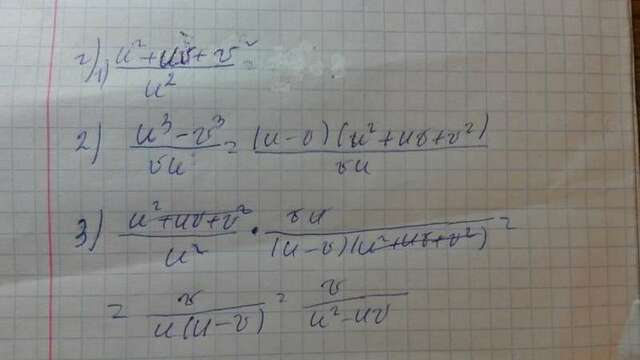 г) 1) (u² + uv + v²)/u² =
2) (u³ - v³)/(vu) = ((u - v)(u² + uv + v²))/(vu)
3) (u² + uv + v²)/u² · (vu)/((u - v)(u² + uv + v²)) =
= v/(u(u - v)) = v/(u² - uv)